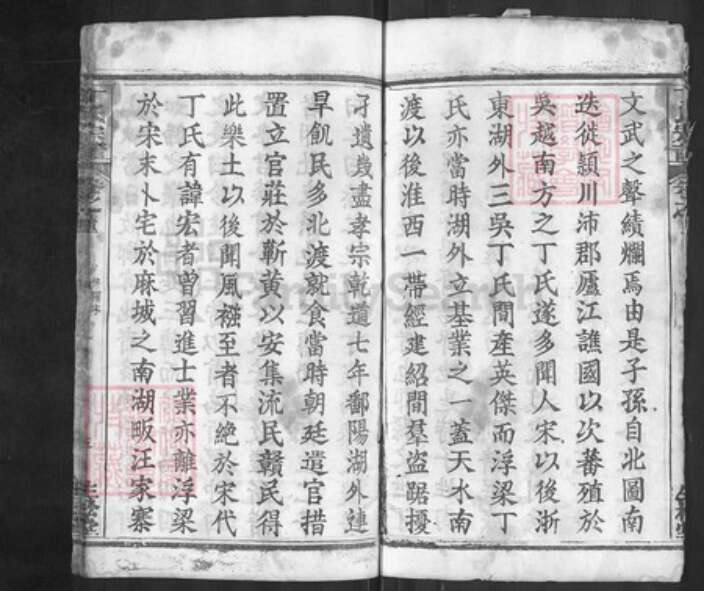 文武之聲績爛焉由是子孫自北圖南
迭徙頴川沛郡廬江譙國以次蕃殖於
吳越南方之丁氏遂多聞人宋以後浙
東湖外三吳丁氏間產英傑而浮梁丁
氏亦當時湖外立基業之一蓋天水南
渡以後淮西一帶經建紹間羣盜踞擾
孑遺幾盡孝宗乾道七年鄱陽湖外連
旱飢民多北渡就食當時朝廷遣官措
置立官莊於蘄黃以安集流民贛民得
此樂土以後聞風襁至者不絕於宋代
丁氏有諱宏者曾習進士業亦離浮梁
於宋末卜宅於麻城之南湖畈汪家寨
FamilySearch